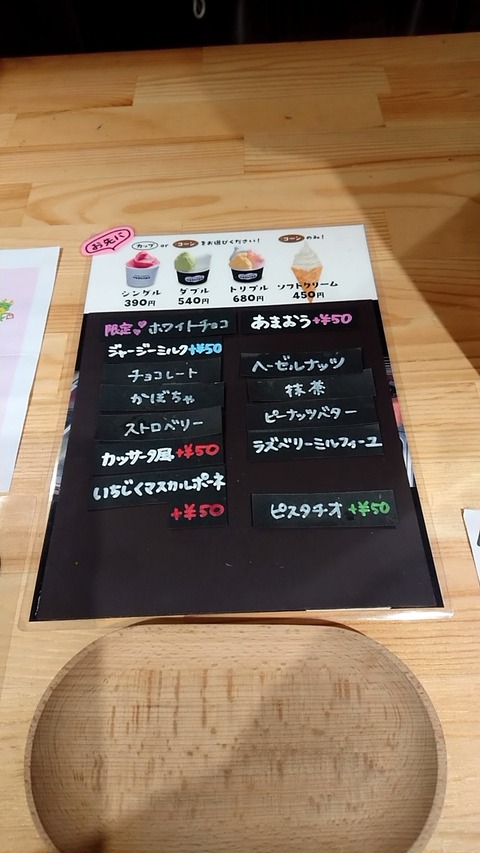 カップ or コーン をお選びください！
コーンのみ！
シングル
390円
ダブル
540円
トリプル
680円
ソフトクリーム
450円
限定 ホワイトチョコ
ジャージーミルク+¥50
チョコレート
かぼちゃ
ストロベリー
カッサータ風+¥50
いちじくマスカルポーネ
+¥50
あまおう+¥50
ヘーゼルナッツ
抹茶
ピーナッツバター
ラズベリーミルフィーユ
ピスタチオ+¥50